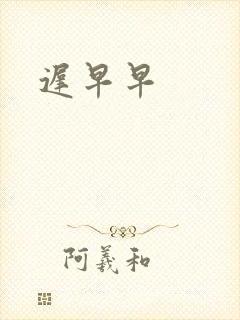 遲早早
阿羲和